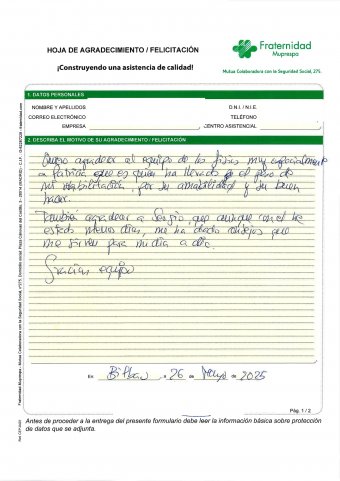 HOJA DE AGRADECIMIENTO / FELICITACIÓN
¡Construyendo una asistencia de calidad!
Fraternidad
Muprespa
Mutua Colaboradora con la Seguridad Social, 275.
1. DATOS PERSONALES
NOMBRE Y APELLIDOS
D.N.I. / N.I.E.
CORREO ELECTRÓNICO
TELÉFONO
EMPRESA
CENTRO ASISTENCIAL
2. DESCRIBA EL MOTIVO DE SU AGRADECIMIENTO / FELICITACIÓN
Quiero agradecer al equipo de los fisios muy especialmente
a Patricia que es quien ha llevado el peso de
mi rehabilitación, por su amabilidad y su buen
hacer.
También agradecer a Sergio, que aunque con él he
estado menos días, me ha dado consejos que
me sirven para mi día a día.
Gracias equipo
En Bilbao a 26 de Mayo de 2025
Pág. 1 / 2
Antes de proceder a la entrega del presente formulario debe leer la información básica sobre protección
de datos que se adjunta.